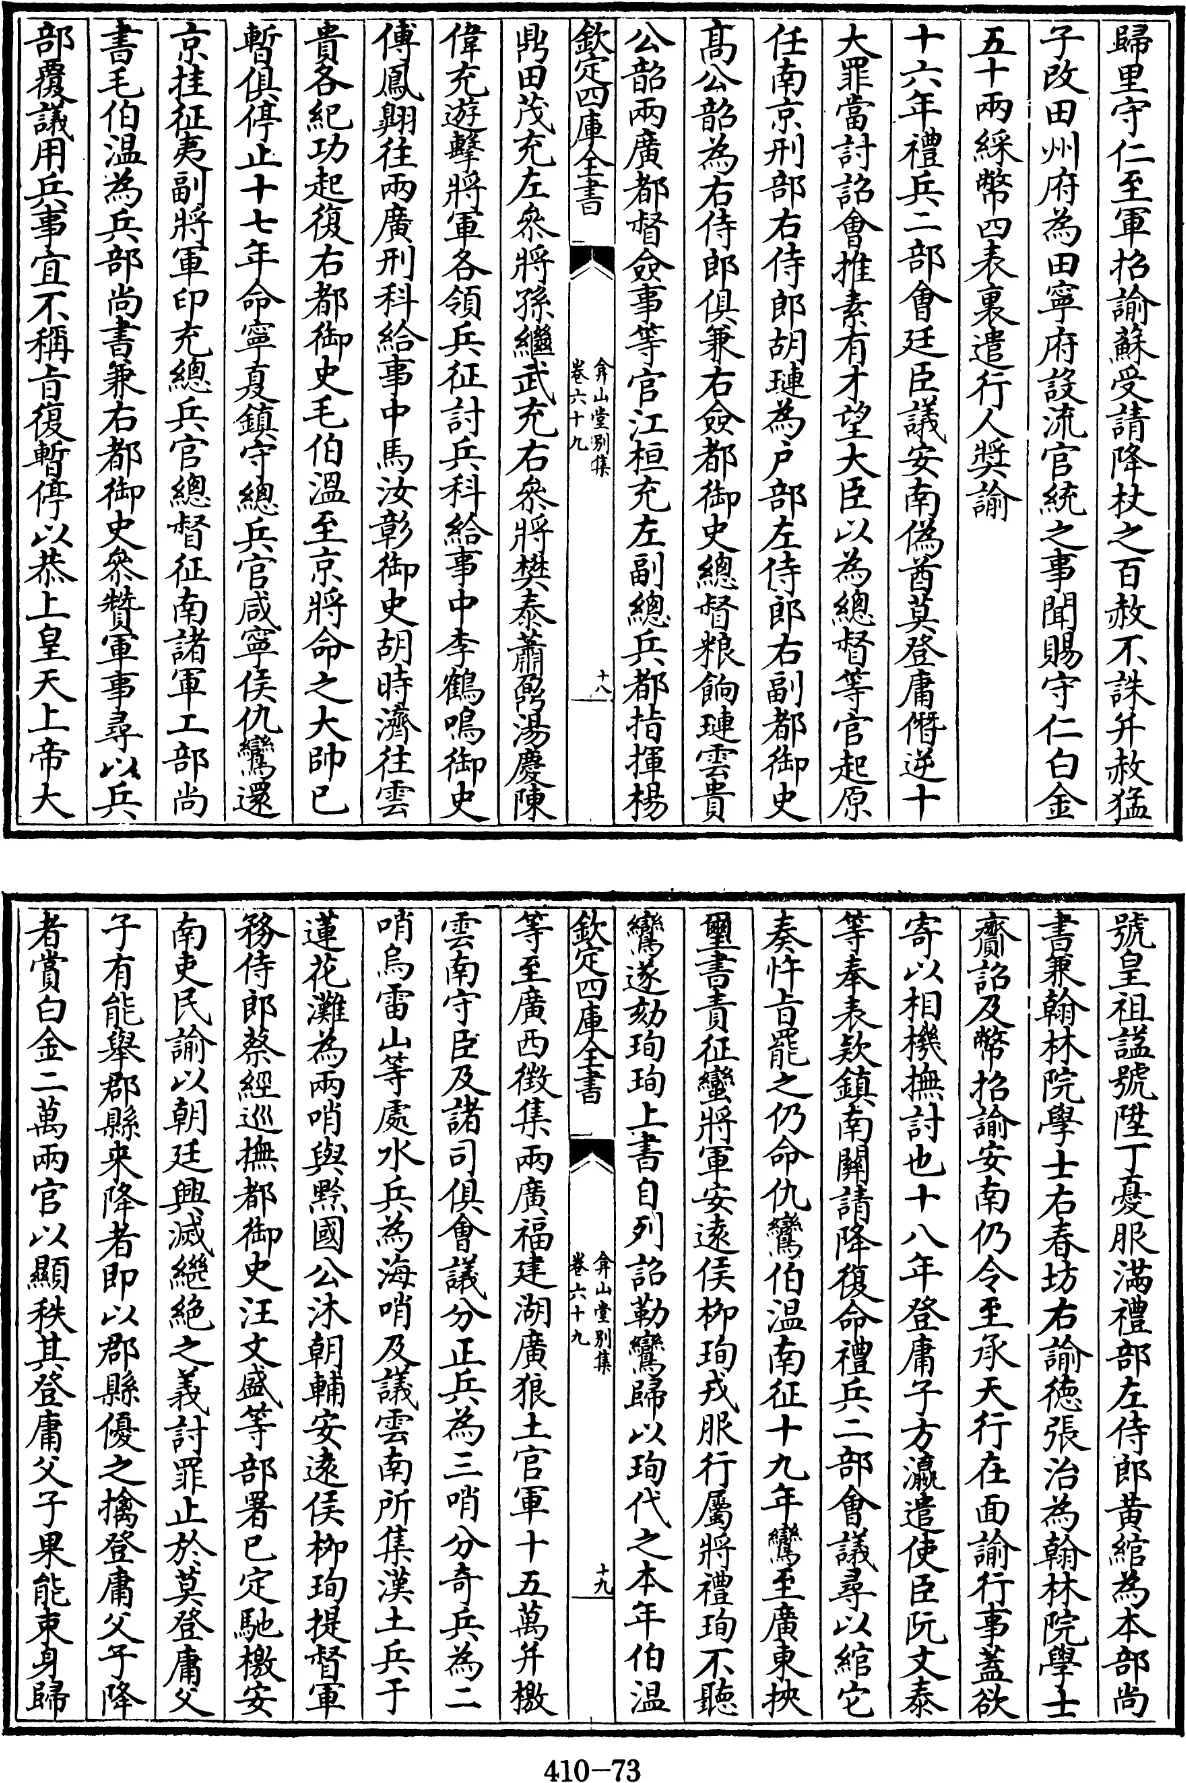 歸里守仁至軍招諭蘇受請降杖之百赦不誅并赦猛
子改田州府為田寧府設流官統之事聞賜守仁白金
五十兩綵幣四表裏遣行人奬諭
十六年禮兵二部會廷臣議安南偽酋莫登庸僭逆十
大罪當討詔會推素有才望大臣以為總督等官起原
任南京刑部右侍郎胡璉為户部左侍郎右副都御史
髙公韶為右侍郎俱兼右僉都御史總督粮餉璉雲貴
公韶兩廣都督僉事等官江桓充左副總兵都指揮楊
欽定四庫全書
弇山堂别集
卷六十九
十八
鼎田茂充左叅將孫繼武充右叅將樊泰蕭鼐湯慶陳
偉充遊擊將軍各領兵征討兵科給事中李鶴鳴御史
傅鳳翺往兩廣刑科給事中馬汝彰御史胡時濟往雲
貴各紀功起復右都御史毛伯溫至京將命之大帥已
暫俱停止十七年命寧夏鎮守總兵官咸寧侯仇鸞還
京挂征夷副將軍印充總兵官總督征南諸軍工部尚
書毛伯温為兵部尚書兼右都御史叅贊軍事尋以兵
部覆議用兵事宜不稱㫖復暫停以恭上皇天上帝大
號皇祖謚號陞丁憂服滿禮部左侍郎黄綰為本部尚
書兼翰林院學士右春坊右諭徳張治為翰林院學士
齎詔及幣招諭安南仍令至承天行在面諭行事蓋欲
寄以相機撫討也十八年登庸子方瀛遣使臣阮文泰
等奉表欵鎮南關請降復命禮兵二部會議尋以綰它
奏忤㫖罷之仍命仇鸞伯温南征十九年鸞至廣東挾
璽書責征蠻將軍安逺侯柳珣戎服行屬將禮珣不聽
鸞遂劾珣珣上書自列詔勒鸞歸以珣代之本年伯温
欽定四庫全書
弇山堂别集
卷六十九
十九
等至廣西徴集兩廣福建湖廣狼土官軍十五萬并檄
雲南守臣及諸司俱會議分正兵為三哨分奇兵為二
哨烏雷山等處水兵為海哨及議雲南所集漢土兵于
蓮花灘為兩哨與黔國公沐朝輔安逺侯栁珣提督軍
務侍郎蔡經巡撫都御史汪文盛等部署已定馳檄安
南吏民諭以朝廷興滅繼絶之義討罪止於莫登庸父
子有能舉郡縣來降者即以郡縣優之擒登庸父子降
者賞白金二萬兩官以顯秩其登庸父子果能束身歸
410-73